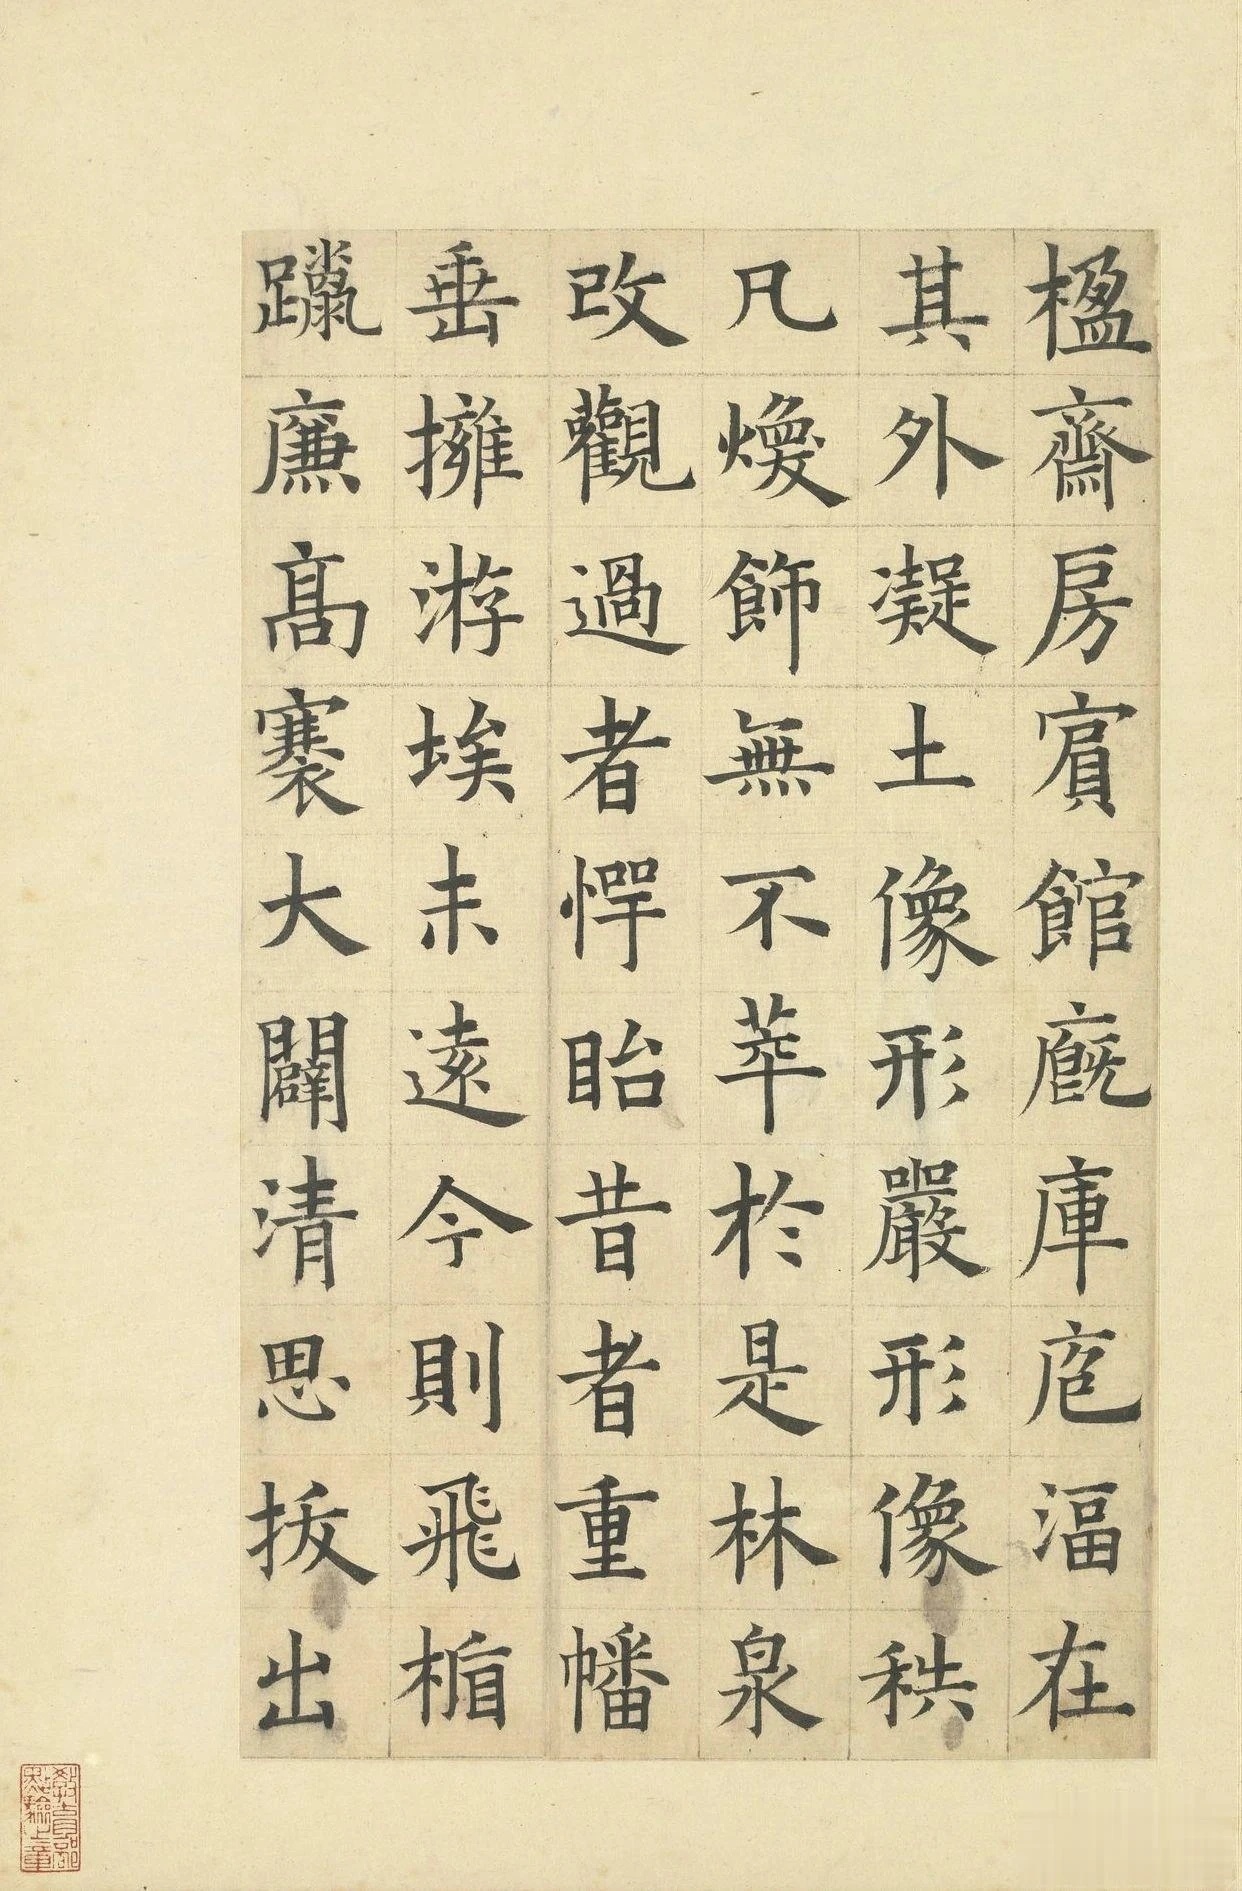 楹齋房賔館廐庫庖湢在
其外凝土像形嚴形像秩
凡煥飾無不萃於是林泉
改觀過者愕眙昔者重幡
垂擁游埃未遠今則飛楯
躐廉高褰大闢清思拔出
教育部
點驗之章